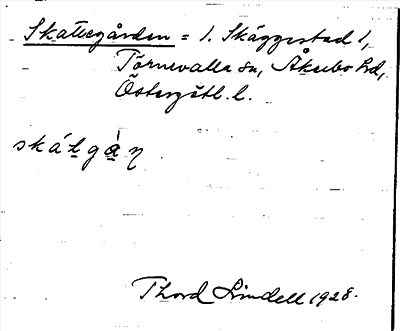 Skattegården = 1. Skäggestad 1,
Törnevalla sn, Åkerbo hd,
Östergötl. l.
skátgàn
Thord Lindell 1928.